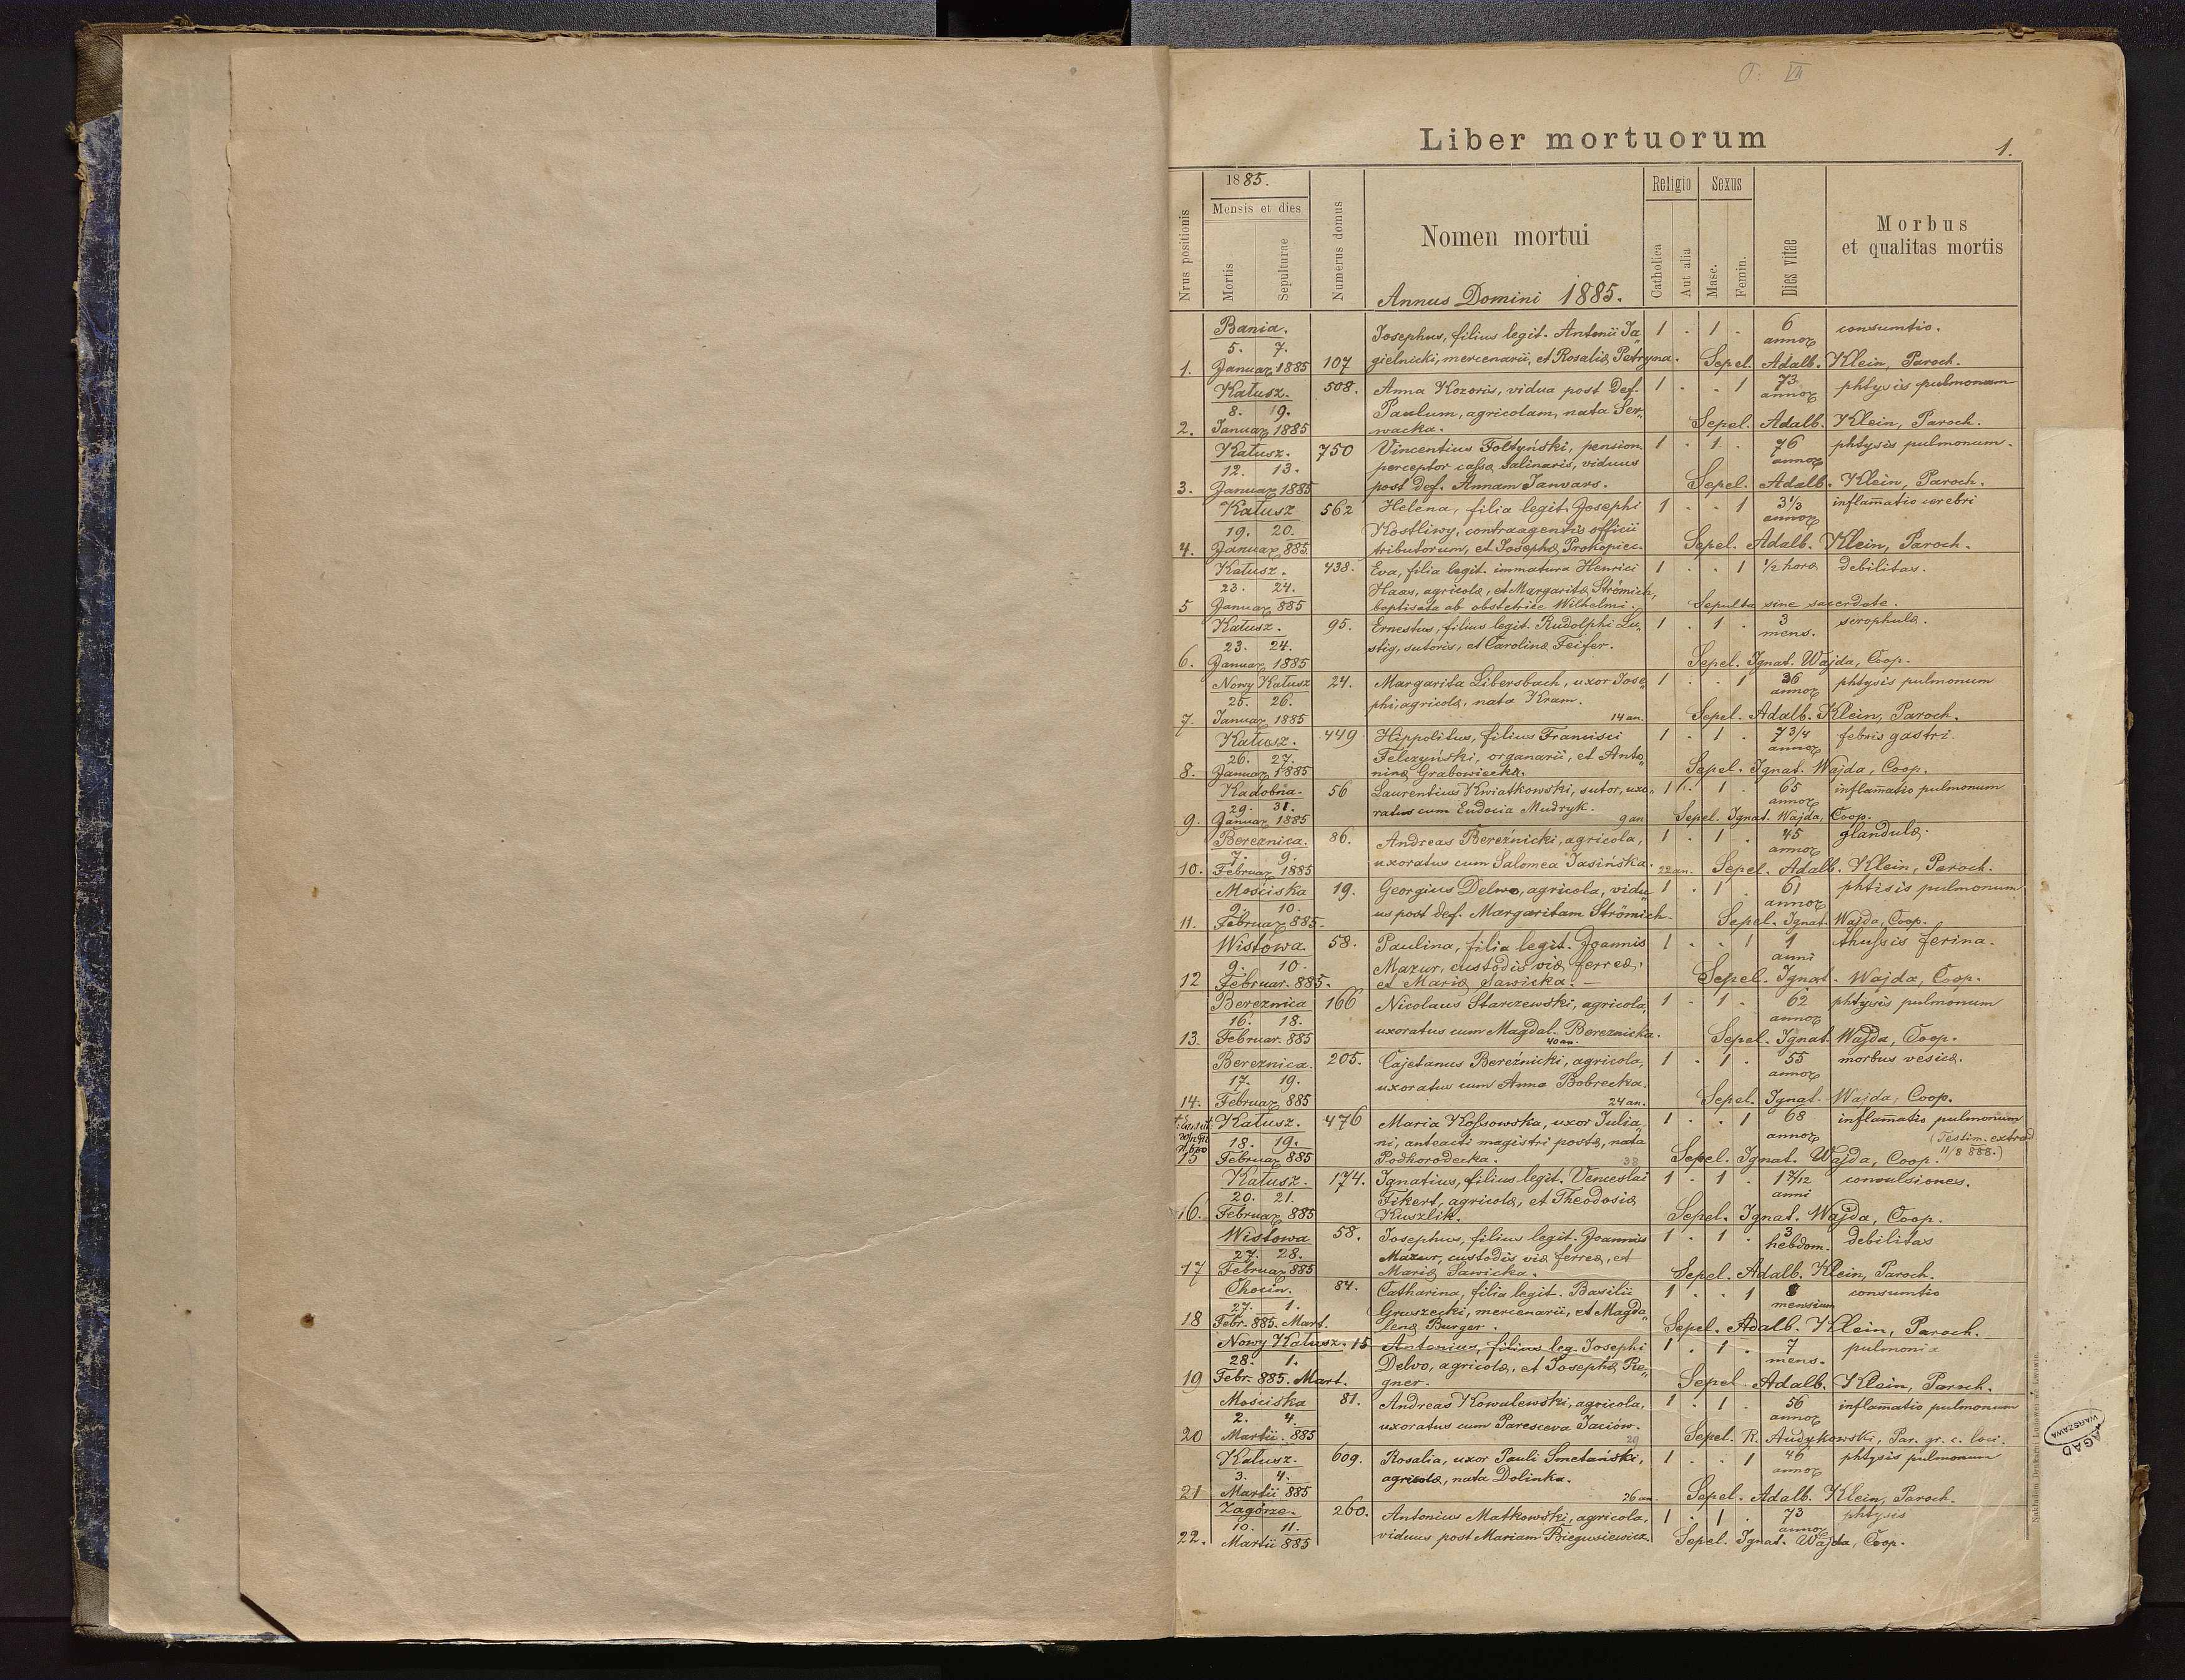 VII
Liber mortuorum
1.
Nrus positionis
1885.
Mensis et dies
Mortis
Sepulturae
Numerus domus
Nomen mortui
Annus Domini 1885.
Religio
Catholica
Aut alia
Sexus
Masc.
Femin.
Dies vitae
Morbus
et qualitas mortis
Bania. Josephus, filius legit. Antonii Ja„ 1 . 1 . 6 consumtio.
5. 7. annor
1. Januar 1885 107 gielnicki, mercenarii, et Rosaliæ Petryna. Sepel. Adalb. Klein, Paroch.
Kałusz. 508. Anna Kozoris, vidua post Def. 1 . . 1 73 phtysis pulmonum
8. 9. Paulum, agricolam, nata Ser„ annor
2. Januar 1885 wacka. Sepel. Adalb. Klein, Paroch.
Kałusz. 750 Vincentius Foltyński, pension. 1 . 1 . 76 phtysis pulmonum.
12. 13. perceptor cassæ salinaris, viduus annor
3. Januar 1885 post def. Annam Janvars. Sepel. Adalb. Klein, Paroch.
Kałusz 562 Helena, filia legit. Josephi 1 . . 1 3 1/3 inflam̄atio cerebri
19. 20. Kostliwy, contraagentis officii annor
4. Januar 885. tributorum, et Josephæ Prokopiec. Sepel. Adalb. Klein, Paroch.
Kałusz. 438. Eva, filia legit. immatura Henrici 1 . . 1 1/2 hora debilitas.
23. 24. Haas, agricolæ, et Margaritæ Strömich,
5 Januar 885 baptisata ab obstetrice Wilhelmi. Sepulta sine sacerdote.
Kałusz. 95. Ernestus, filius legit. Rudolphi Lu„ 1 . 1 . 3 scrophulæ.
23. 24. stig, sutoris, et Carolinæ Feifer. mens.
6. Januar 1885 Sepel. Ignat. Wajda, Coop.
Nowy Kałusz 24. Margarita Libersbach, uxor Jose„ 1 . . 1 36 phtysis pulmonum
25. 26. phi, agricolæ, nata Kram. annor
7. Januar 1885 14 an. Sepel. Adalb. Klein, Paroch.
Kałusz. 449 Hippolitus, filius Francisci 1 . 1 . 7 3/4 febris gastri.
26. 27. Felczyński, organarii, et Anto„ annor
8. Januar 1885 ninæ Grabowiecka. Sepel. Ignat. Wajda, Coop.
Kadobna. 56 Laurentius Kwiatkowski, sutor, uxo„ 1 . 1 . 65 inflam̄atio pulmonum
29. 31. ratus cum Eudocia Mudryk. annor
9. Januar 1885 9 an Sepel. Ignat. Wajda, Coop.
Bereznica. 86. Andreas Bereźnicki, agricola, 1 . 1 . 45 glandulæ.
7. 9. annor
10. Februar 1885 uxoratus cum Salomea Jasińska. 22 an. Sepel. Adalb. Klein, Paroch.
Mościska 19. Georgius Delwo, agricola, vidu„ 1 . 1 . 61 phtisis pulmonum
9. 10. annor
11. Februar 885. us post def. Margaritam Strömich. Sepel. Ignat. Wajda, Coop.
Wistowa. 58. Paulina, filia legit. Joannis 1 . . 1 1 thussis ferina.
9. 10. Mazur, custodis viæ ferreæ, anni
12 Februar. 885. et Mariæ Sawicka. — Sepel. Ignat. Wajda, Coop.
Bereznica 166 Nicolaus Starczewski, agricola, 1 . 1 . 62 phtysis pulmonum
16. 18. annor
13. Februar. 885 uxoratus cum Magdal. Bereznicka. 40 an. Sepel. Ignat. Wajda, Coop.
Bereznica. 205. Cajetanus Bereźnicki, agricola, 1 . 1 . 55 morbus vesicæ.
17. 19. uxoratus cum Anna Bobrecka. annor
14. Februar 885 24 an. Sepel. Ignat. Wajda, Coop.
Kałusz. 476 Maria Kossowska, uxor Julia„ 1 . . 1 68 inflam̄atio pulmonum
18. 19. ni, anteacti magistri postæ, nata annor (Testim. extrad
15 Februar 885 Podhorodecka. 38 Sepel. Ignat. Wajda, Coop. 11/8 888.)
Kałusz. 174. Ignatius, filius legit. Venceslai 1 . 1 . 1 7/12 convulsiones.
20. 21. Fikert, agricolæ, et Theodosiæ anni
16. Februar 885 Kuszlik. Sepel. Ignat. Wajda, Coop.
Wistowa 58. Josephus, filius legit. Joannis 1 . 1 . 3 debilitas
27. 28. Mazur, custodis viæ ferreæ, et hebdom.
17 Februar 885 Mariæ Sawicka. Sepel. Adalb. Klein, Paroch.
Chocin. 84. Catharina, filia legit. Basilii 1 . . 1 8 consumtio
27. 1. Gruszecki, mercenarii, et Magda„ mensium
18 Febr. 885. Mart. lenæ Burger. Sepel. Adalb. Klein, Paroch.
Nowy Kałusz. 15 Antonius, filius leg. Josephi 1 . 1 . 7 pulmonia
28. 1. Delwo, agricolæ, et Josephæ Re„ mens.
19 Febr. 885. Mart. gner. Sepel. Adalb. Klein, Paroch.
Mościska 81. Andreas Kowalewski, agricola, 1 . 1 . 56 inflam̄atio pulmonum
2. 4. uxoratus cum Paresceva Jaciów. annor
20 Martii. 885 29 Sepel. R. Audykowski, Par. gr. c. loci.
Kałusz. 609. Rosalia, uxor Pauli Smetański, 1 . . 1 46 phtysis pulmonum
3. 4. agricolæ, nata Dolinka. annor
21 Martii 885 26 an. Sepel. Adalb. Klein, Paroch.
Zagórze. 260. Antonius Matkowski, agricola, 1 . 1 . 73 phtysis
10. 11. annor
22. Martii 885 viduus post Mariam Biegusiewicz. Sepel. Ignat. Wajda, Coop.
Nakładem Drukarni Ludowej we Lwowie.
AGAD
WARSZAWA